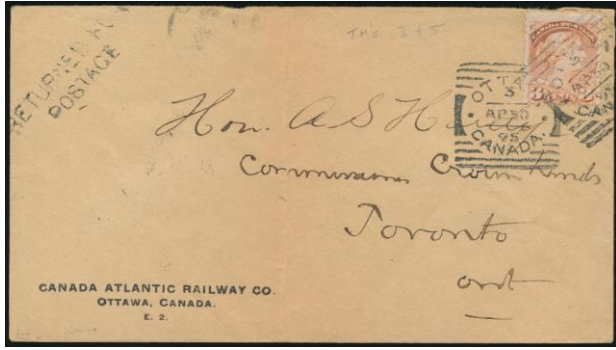 RETURNED
POSTAGE
TM's 3 + 5
CANADA POSTAGE
OTTAWA
3
AP 30
95
CANADA.
Hon. A S Hardy
Commissioner Crown Lands
Toronto
Ont
CANADA ATLANTIC RAILWAY CO.
OTTAWA, CANADA.
E. 2.